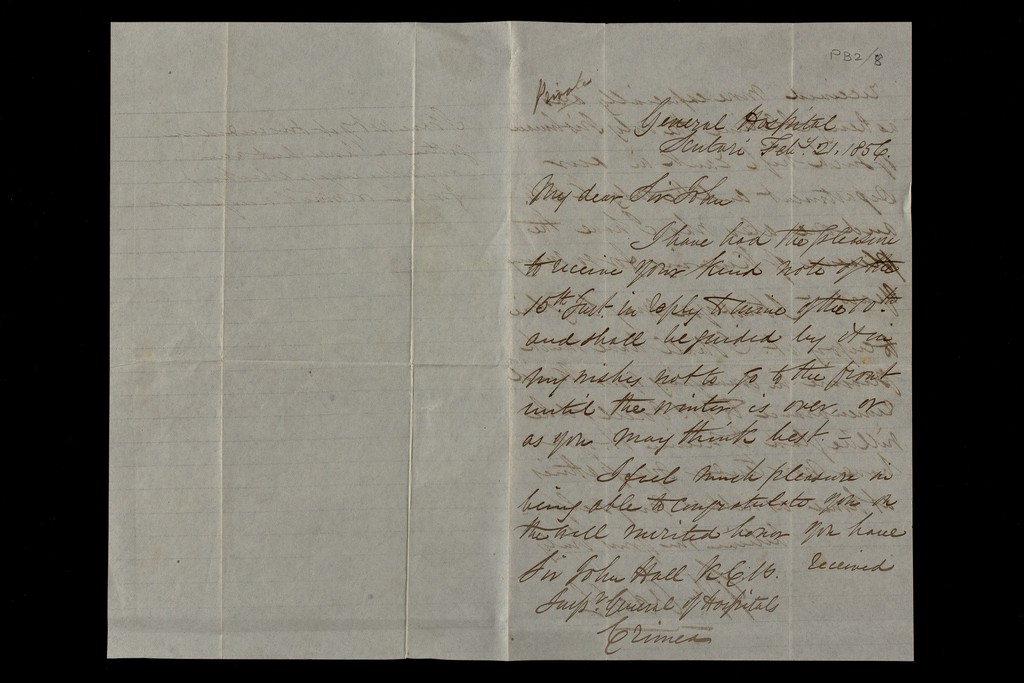 PB2/8
Private
General Hospital
Scutari Feby. 21. 1856.
My dear Sir John
I have had the pleasure
to receive your kind note of the
15th Inst. in reply to mine of the 10th
and shall be guided by it in
my wishes not to go to the front
until the winter is over, or
as you may think best.
I feel much pleasure in
being able to congratulate you on
the well merited honor you have
received
Sir John Hall K.C.B.
Inspr. General of Hospitals
Crimea